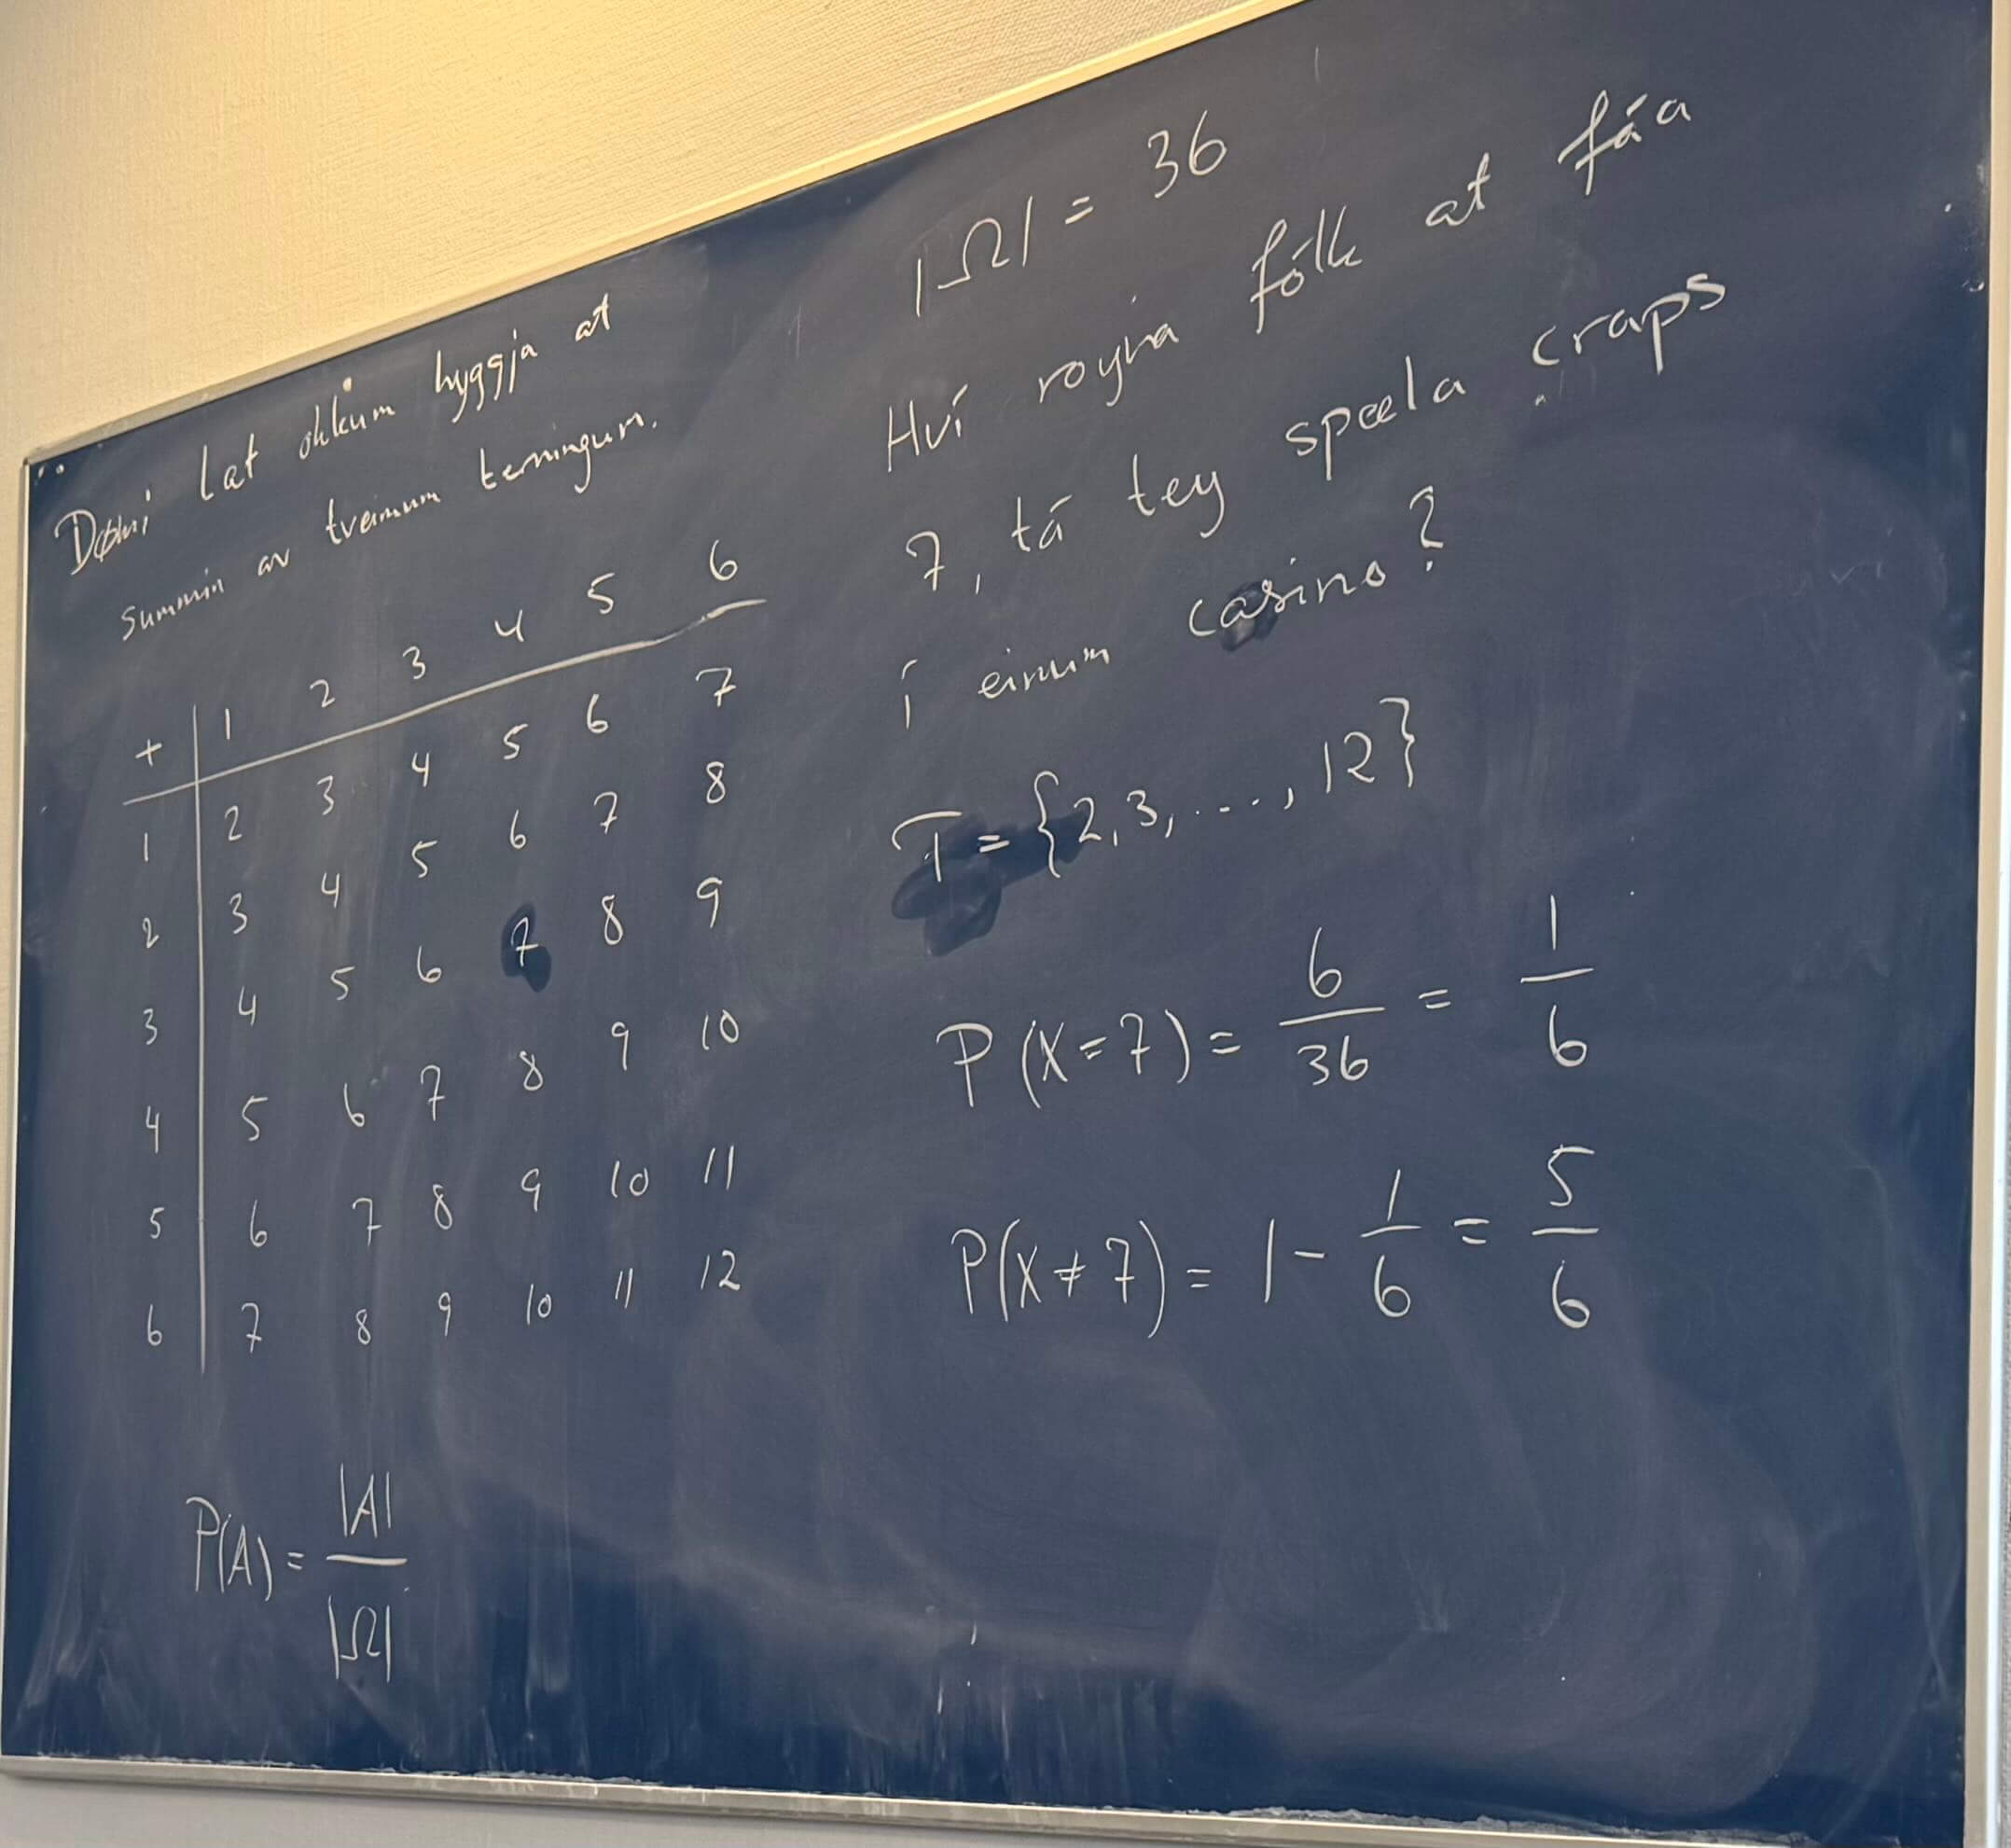 Dømi Lat okkum hyggja at
summin av tveimum terningum.
+ | 1 2 3 4 5 6
1 | 2 3 4 5 6 7
2 | 3 4 5 6 7 8
3 | 4 5 6 7 8 9
4 | 5 6 7 8 9 10
5 | 6 7 8 9 10 11
6 | 7 8 9 10 11 12
P(A) = |A| / |Ω|
|Ω| = 36
Hví royna fólk at fáa
7, tá tey spæla craps
í einum casino?
T = {2, 3, ..., 12}
P(X=7) = 6/36 = 1/6
P(X≠7) = 1 - 1/6 = 5/6